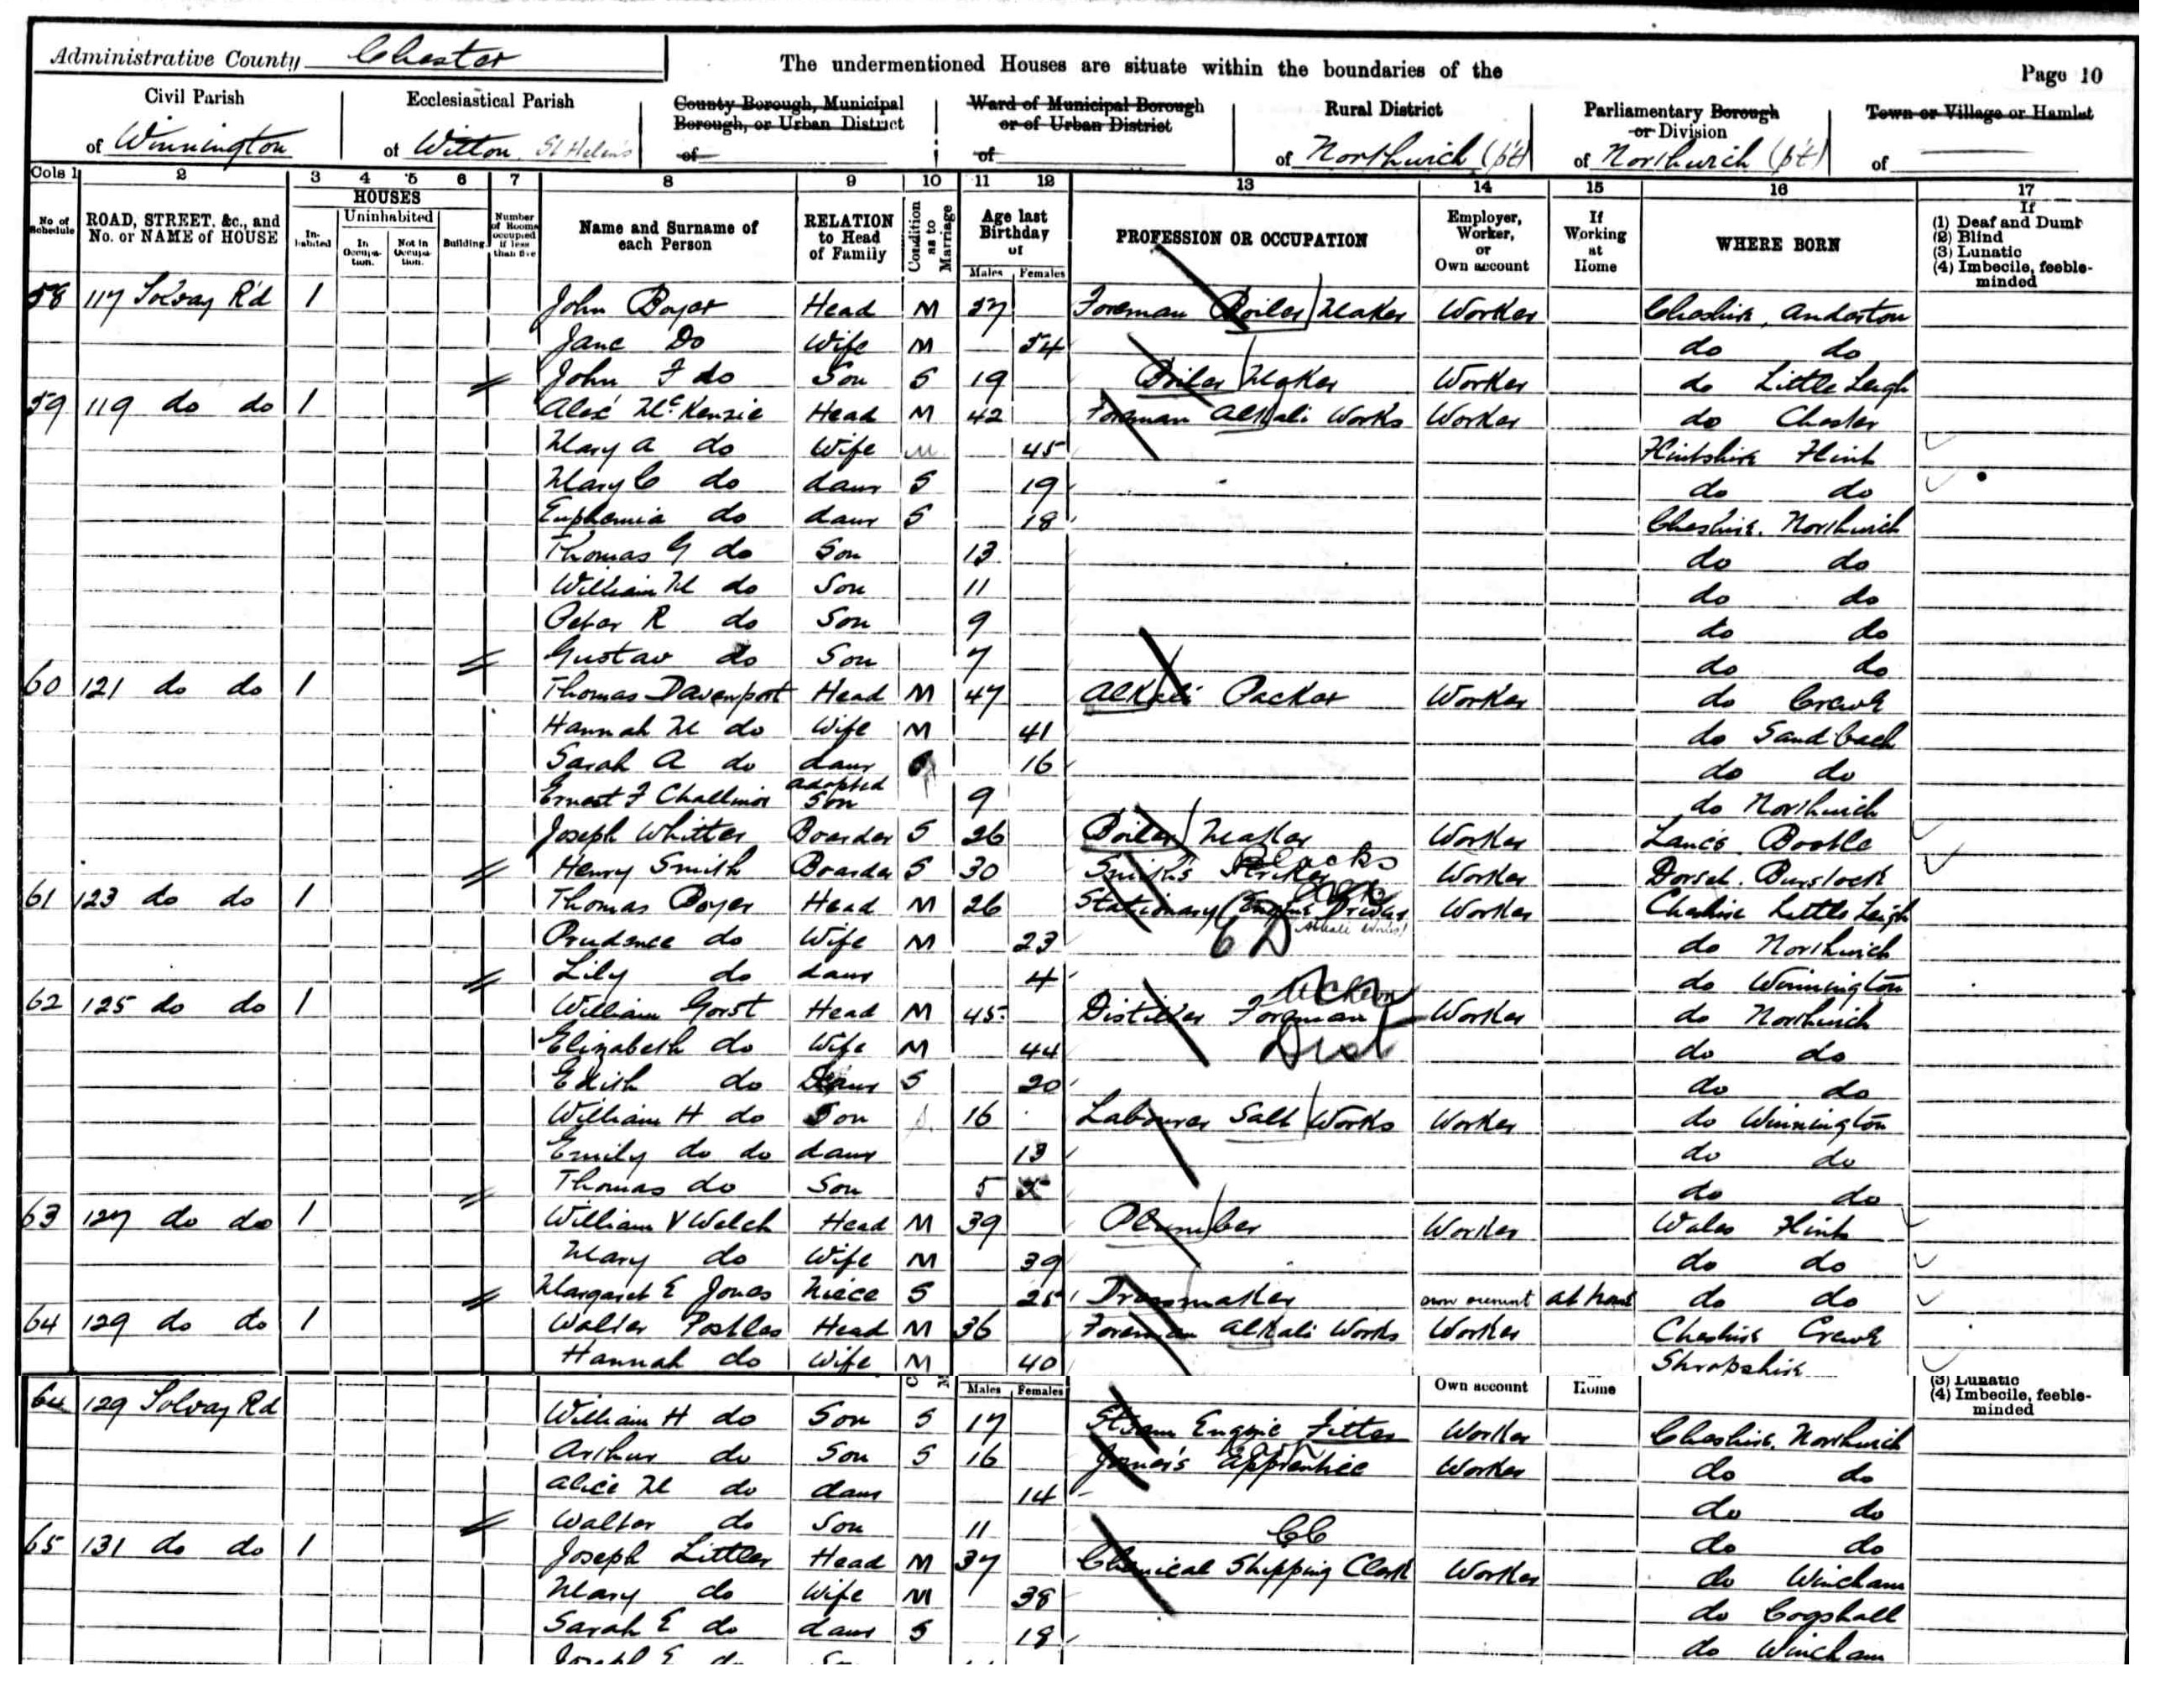 Administrative County Chester
The undermentioned Houses are situate within the boundaries of the
Page 10
Civil Parish
of Winnington
Ecclesiastical Parish
of Witton St Helen's
County Borough, Municipal
Borough, or Urban District
of
Ward of Municipal Borough
or of Urban District
of
Rural District
of Northwich (pt)
Parliamentary Borough
or Division
of Northwich (pt)
Town or Village or Hamlet
of
Cols 1 2 3 4 5 6 7 8 9 10 11 12 13 14 15 16 17
No. of Schedule
ROAD, STREET, &c., and No. or NAME of HOUSE
HOUSES
Inhabited
Uninhabited
In Occupation.
Not in Occupation.
Building
Number of Rooms occupied if less than five
Name and Surname of each Person
RELATION to Head of Family
Condition as to Marriage
Age last Birthday of
Males Females
PROFESSION OR OCCUPATION
Employer, Worker, or Own account
If Working at Home
WHERE BORN
If
(1) Deaf and Dumb
(2) Blind
(3) Lunatic
(4) Imbecile, feeble-minded
58 117 Solvay Rd 1 John Boyer Head M Foreman Boiler Maker Worker Cheshire, Anderton
Jane Do Wife M 54 do do
John F do Son S 19 Boiler Maker Worker do Little Leigh
59 119 do do 1 Alex McKenzie Head M 42 Foreman Alkali Works Worker do Chester
Mary A do Wife M 45 Flintshire Flint
Mary C do daur S 19 do do
Euphemia do daur S 18 Cheshire. Northwich
Thomas G do Son 13 do do
William M do Son 11 do do
Peter R do Son 9 do do
Gustav do Son 7 do do
60 121 do do 1 Thomas Davenport Head M 47 Alkali Packer Worker do Crewe
Hannah M do Wife M 41 do Sandbach
Sarah A do daur 16 do do
Ernest F Challinor adopted Son 9 do Northwich
Joseph Whitter Boarder S 26 Boiler Maker Worker Lancs. Bootle
Henry Smith Boarder S 30 Smith's Striker Blacks Worker Dorset.
61 123 do do 1 Thomas Boyer Head M 26 Stationary Engine Driver Worker Cheshire Little Leigh
Alkali Works
6 D
Prudence do Wife M 23 do Northwich
Lily do daur 4 do Winnington
62 125 do do 1 William Gorst Head M 45 Distiller Foreman Worker do Northwich
Dist
Elizabeth do Wife M 44 do do
Edith do Daur S 20 do do
William H do Son 16 Labourer Salt Works Worker do Winnington
Emily do do daur 13 do do
Thomas do Son 5 do do
63 127 do do 1 William V Welch Head M 39 Plumber Worker Wales Flint
Mary do Wife M 39 do do
Margaret E Jones Niece S 25 Dressmaker own account at home do do
64 129 do do 1 Walter Postles Head M 36 Foreman Alkali Works Worker Cheshire Crewe
Hannah do Wife M 40 Shropshire
Males Females
Own account
Home
(3) Lunatic
(4) Imbecile, feeble-minded
64 129 Solvay Rd William H do Son S 17 Steam Engine Fitter Worker Cheshire. Northwich
Arthur do Son S 16 Joiner's Apprentice Worker do do
Alice M do daur 14 do do
Walter do Son 11 do do
CC
65 131 do do 1 Joseph Littler Head M 37 Chemical Shipping Clerk Worker do Wincham
Mary do Wife M 38 do Cogshall
Sarah E do daur S 18 do Wincham